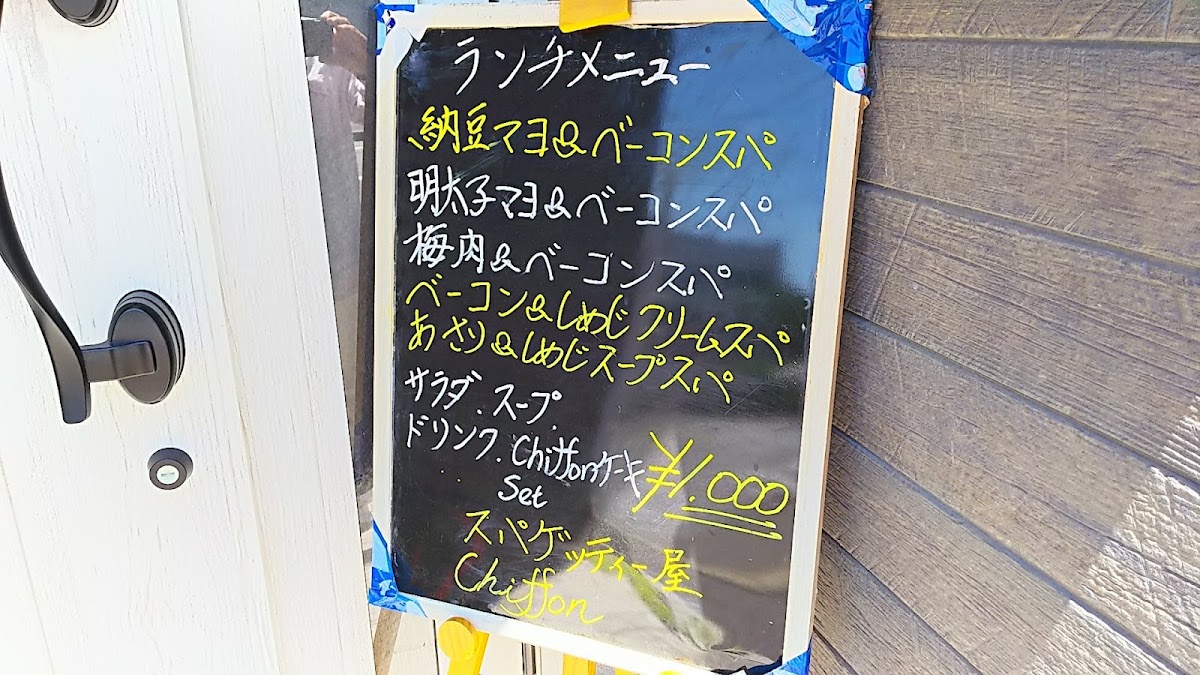 ランチメニュー
納豆マヨ&ベーコンスパ
明太子マヨ&ベーコンスパ
梅肉&ベーコンスパ
ベーコン&しめじクリームスパ
あさり&しめじスープスパ
サラダ.スープ.
ドリンク.Chiffonケーキ
Set
¥1.000
スパゲッティー屋
Chiffon